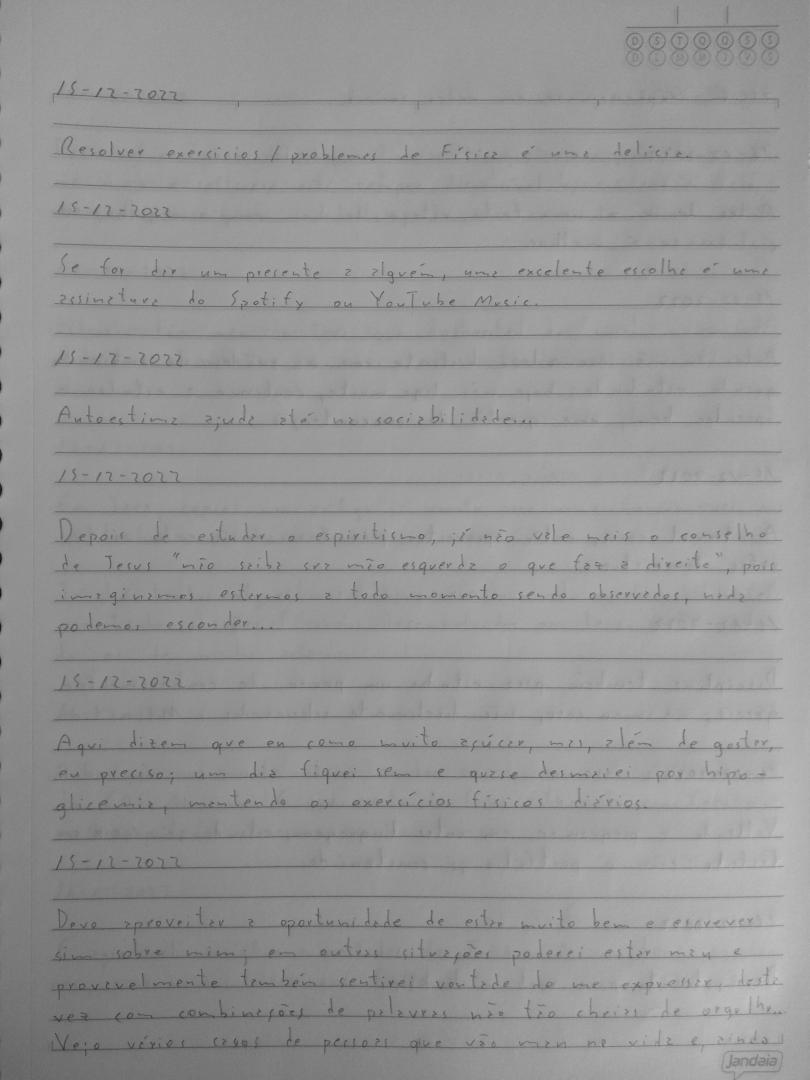 D S T Q Q S S
15-12-2022
Resolver exercícios / problemas de Física é uma delícia.
15-12-2022
Se for dar um presente a alguém, uma excelente escolha é uma
assinatura do Spotify ou YouTube Music.
15-12-2022
Autoestima ajuda até na sociabilidade...
15-12-2022
Depois de estudar o espiritismo, já não vale mais o conselho
de Jesus "não saiba sua mão esquerda o que faz a direita", pois
imaginamos estarmos a todo momento sendo observados, nada
podemos esconder...
15-12-2022
Aqui dizem que eu como muito açúcar, mas, além de gostar,
eu preciso; um dia fiquei sem e quase desmaiei por hipo-
glicemia, mantendo os exercícios físicos diários.
15-12-2022
Devo aproveitar a oportunidade de estar muito bem e escrever
sim sobre mim; em outras situações poderei estar mau e
provavelmente também sentirei vontade de me expressar, desta
vez com combinações de palavras não tão cheias de orgulho...
Vejo vários casos de pessoas que vão mau na vida e, ainda
Jandaia